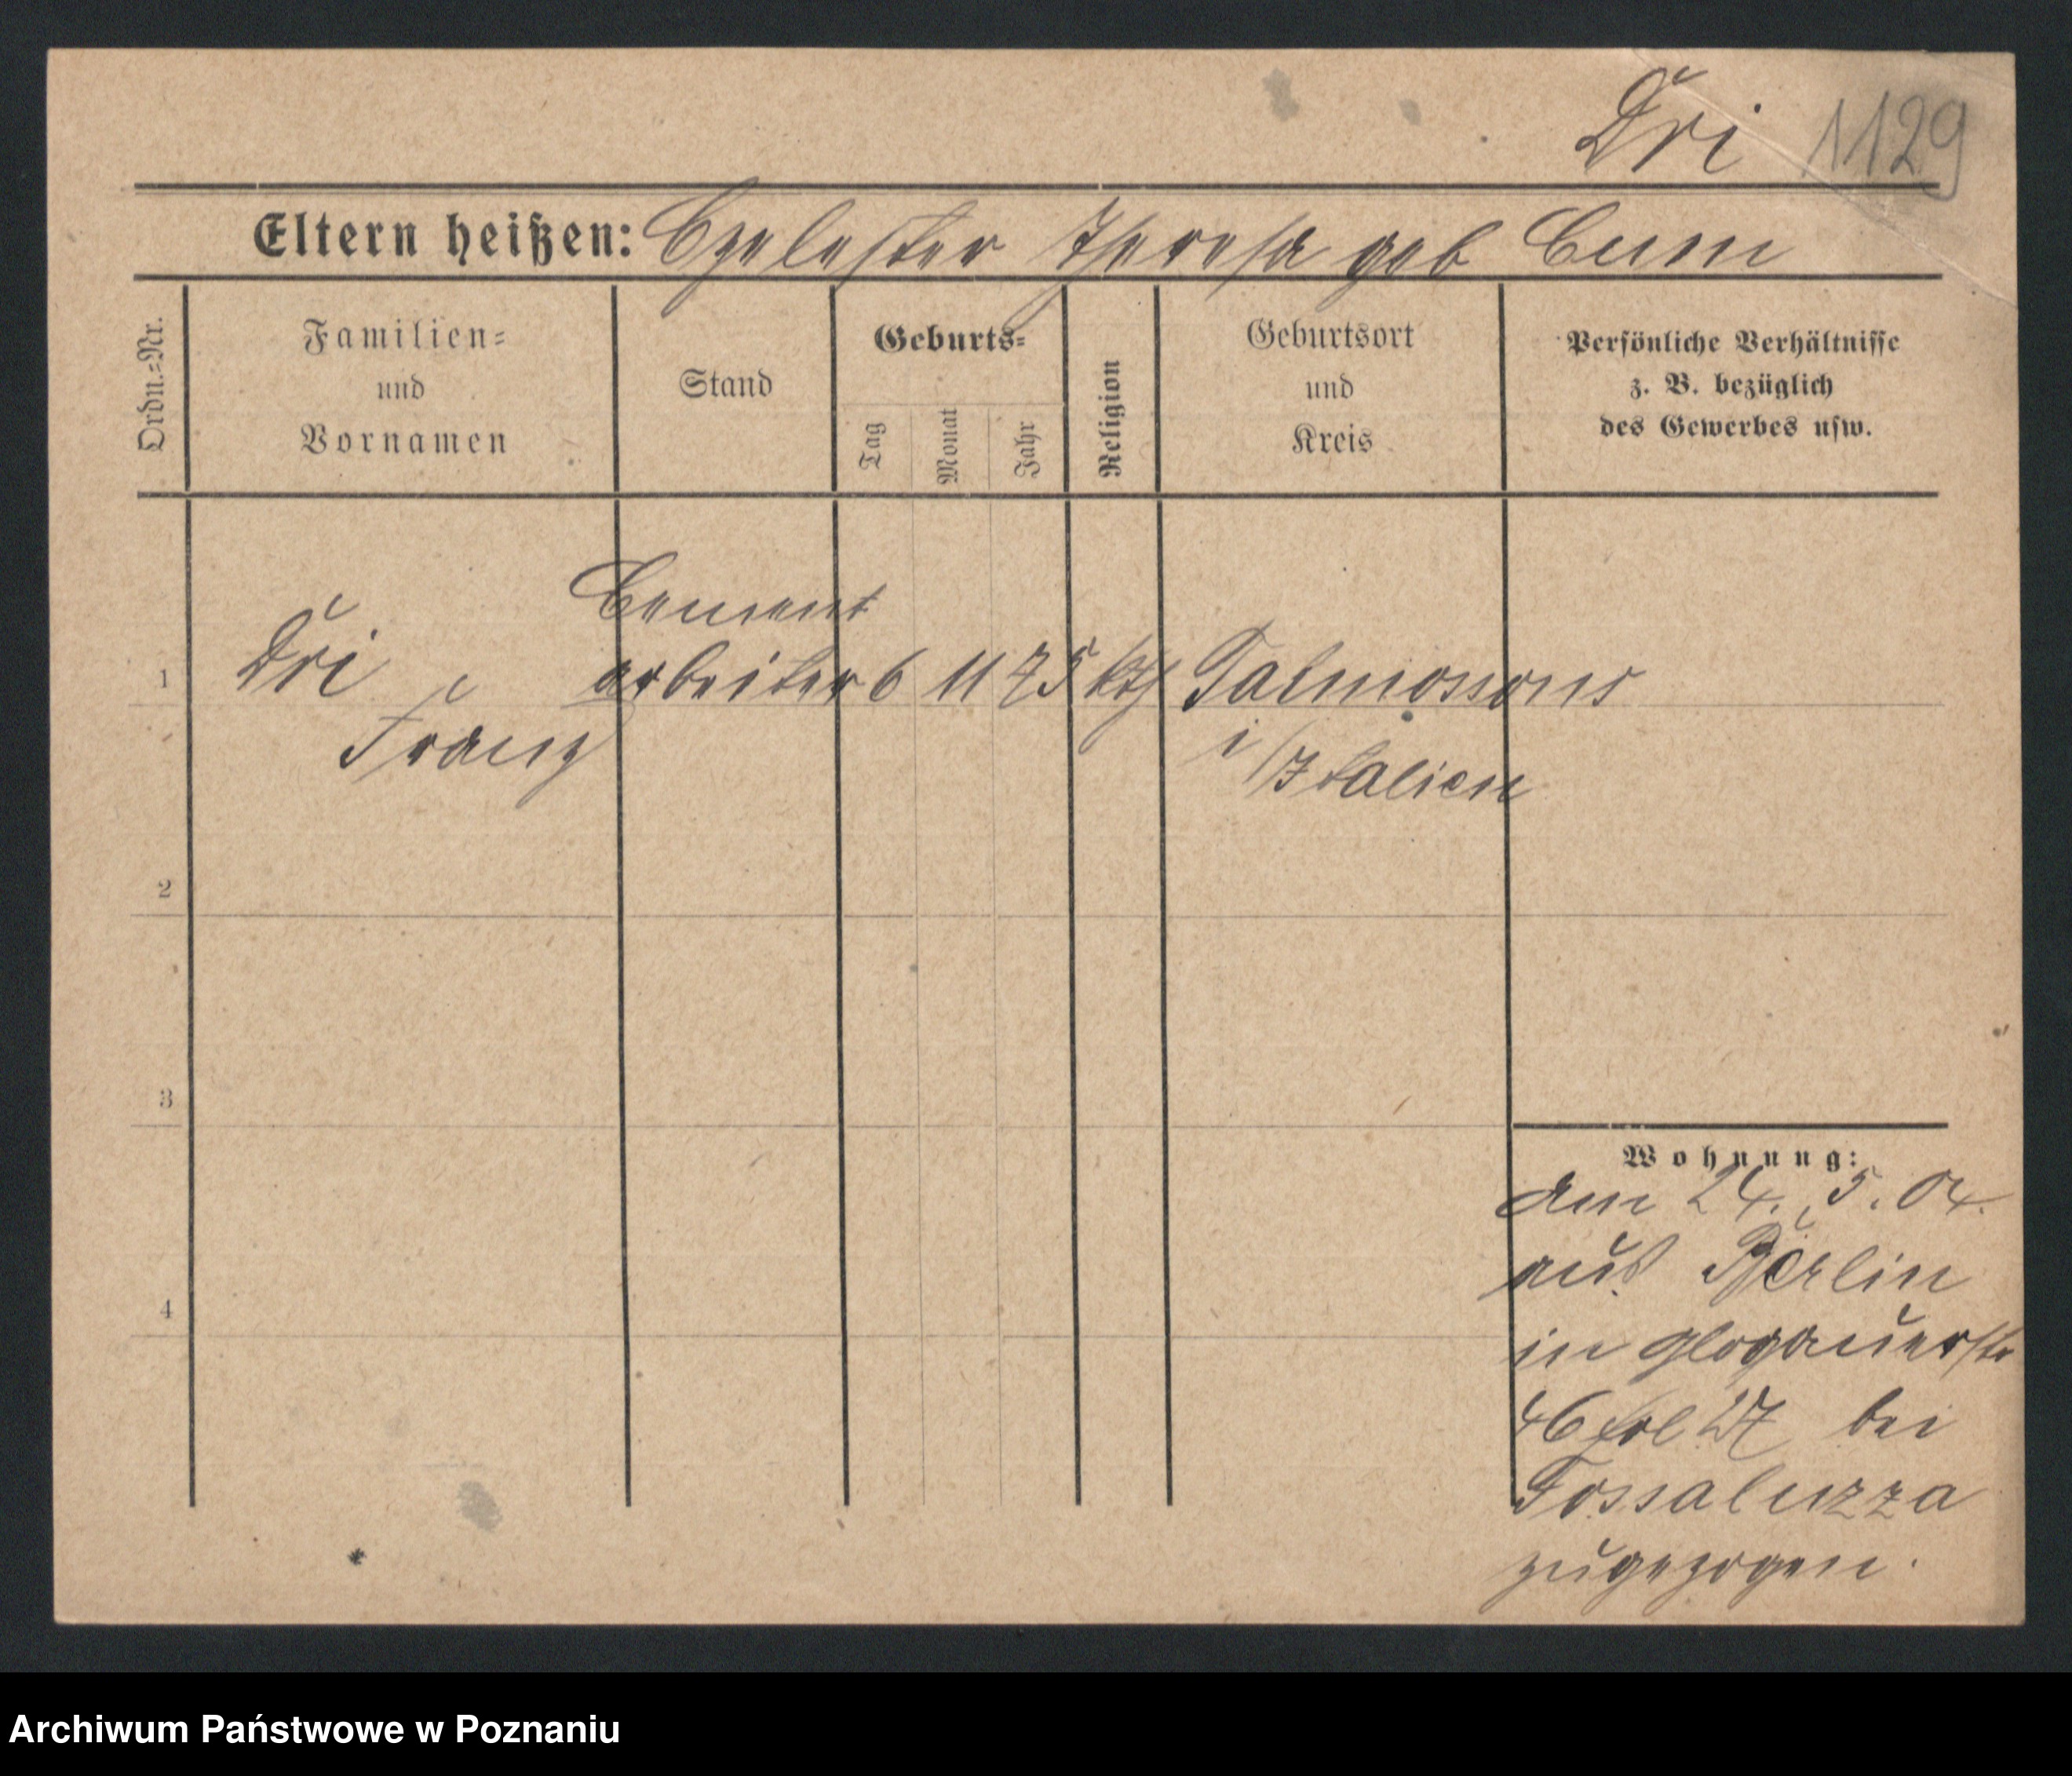 Dri 1129
Eltern heißen: Czelester Theresa geb Cum
Ordn.=Nr.
Familien=
und
Vornamen
Stand
Geburts=
Tag
Monat
Jahr
Religion
Geburtsort
und
Kreis
Persönliche Verhältnisse
z. B. bezüglich
des Gewerbes usw.
Cement
1 Dri arbeiter 6 11 75 kth Talmossons
Franz i/Italien
2
3
4
Wohnung:
am 24. 5. 04.
aus Berlin
in Glogauerstr
46 bei
Fossaluzza
zugezogen.
Archiwum Państwowe w Poznaniu